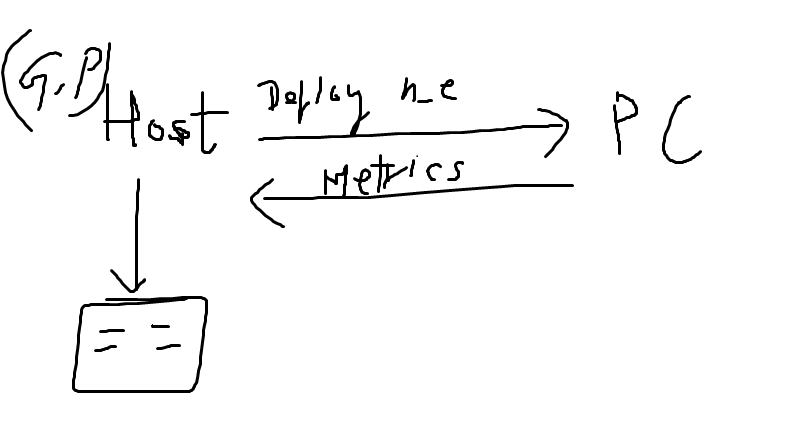 (G,P) Host
Deploy n_e
PC
Metrics